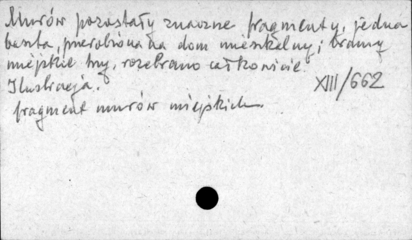 Murów pozostały znaczne fragmenty, jedna
baszta, przerobiona na dom mieszkalny; bramy
miejskie trzy, rozebrano całkowicie.
Ilustracja.
XIII/662
fragment murów miejskich